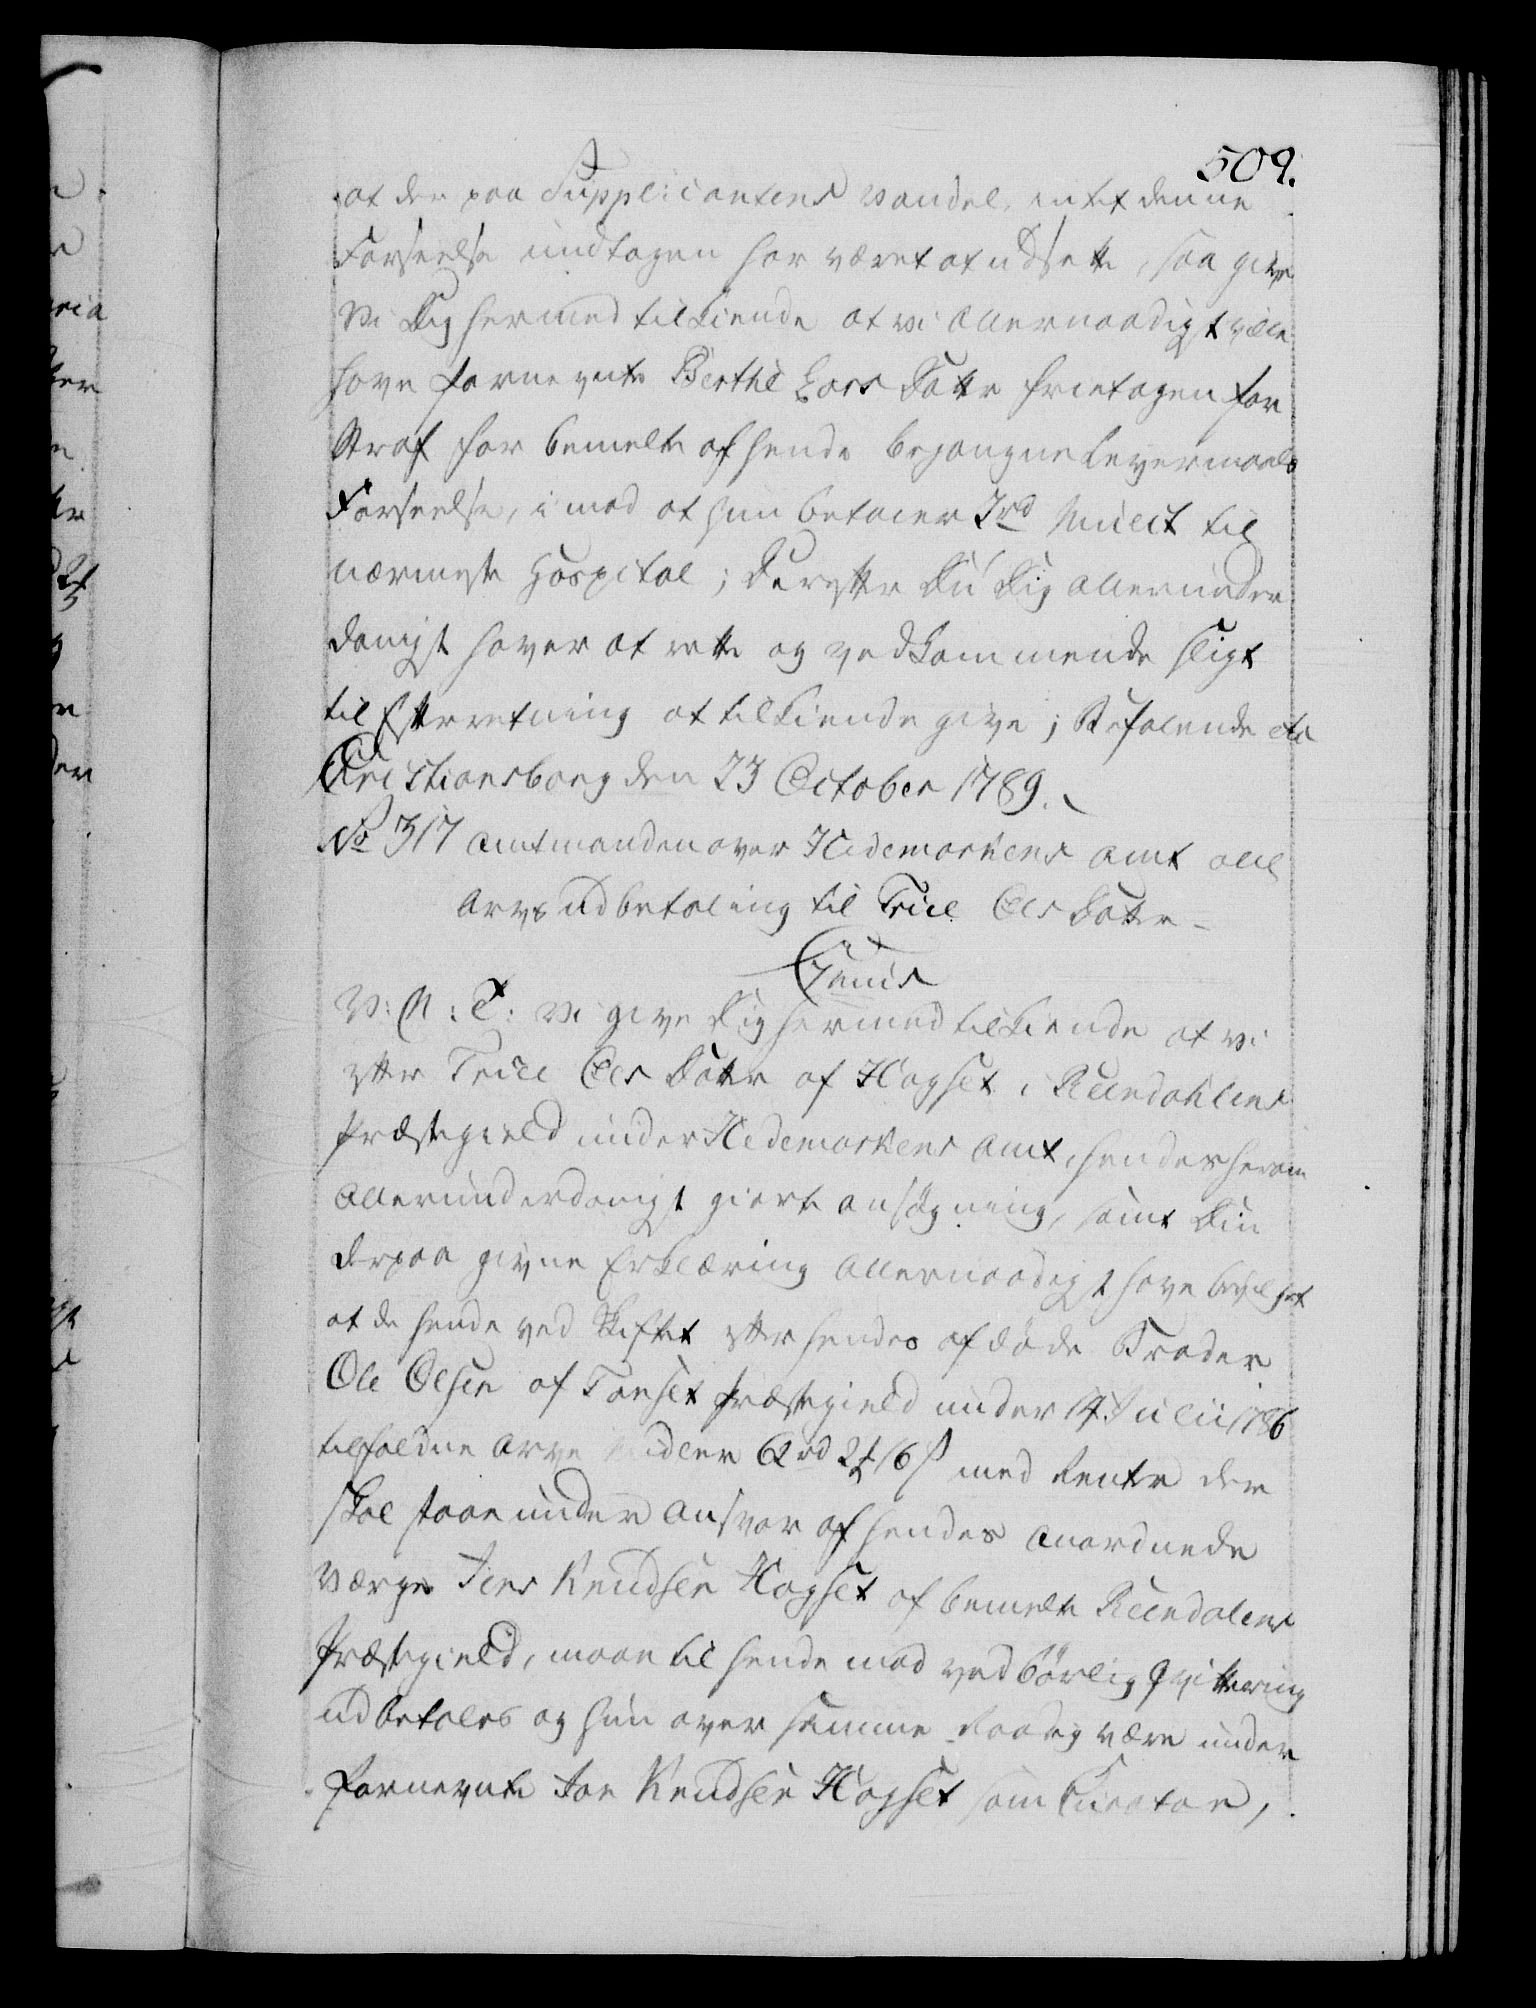 509.
at der paa Supplicantens Vandel, intet denne
Forseelse undtagen har været at udsette, saa give
vi Dig hermed tilkiende at vi Allernaadigst ville
have fornevnte Berthe Lars Datter frietagen for
Straf for bemelte af hende begangne Leyermaals
Forseelse, imod at hun betaler 2rd Mulct til
nærmeste Hospital; Derefter Du Dig allerunder
danigst haver at rette og vedkommende sligt
til Efterretning at tilkiende give; Befalende etc
Christiansborg den 23 October 1789.
No 317 Amtmanden over Hedemarkens Amt all
Arvs Udbetaling til Trile Ols Datter
Genus
V: A: T: vi give Dig hermed tilkiende at vi
efter Trile Ols Datter af Hagset i Reendahlens
Præstegield under Hedemarkens Amt, hendes herom
Allerunderdanigst giorte ansøgning, samt Din
derpaa givne Erklæring Allernaadigst have bevilget
at de hende ved Skiftet efter hendes afdøde Broder
Ole Olsen af Tønset Præstegield under 14 Julii 1786
tilfaldne Arve Midler 62rd 2 16 ß med Renter der
skal staae under Ansvar af hendes anordnede
Værge Jens Knudsen Hagset af bemelte Reendalens
Præstegield, maae til hende mod vedbørlig Qvittering
udbetales og hun over samme raadig være under
fornevnte Jon Knudsen Hagset som Curator,